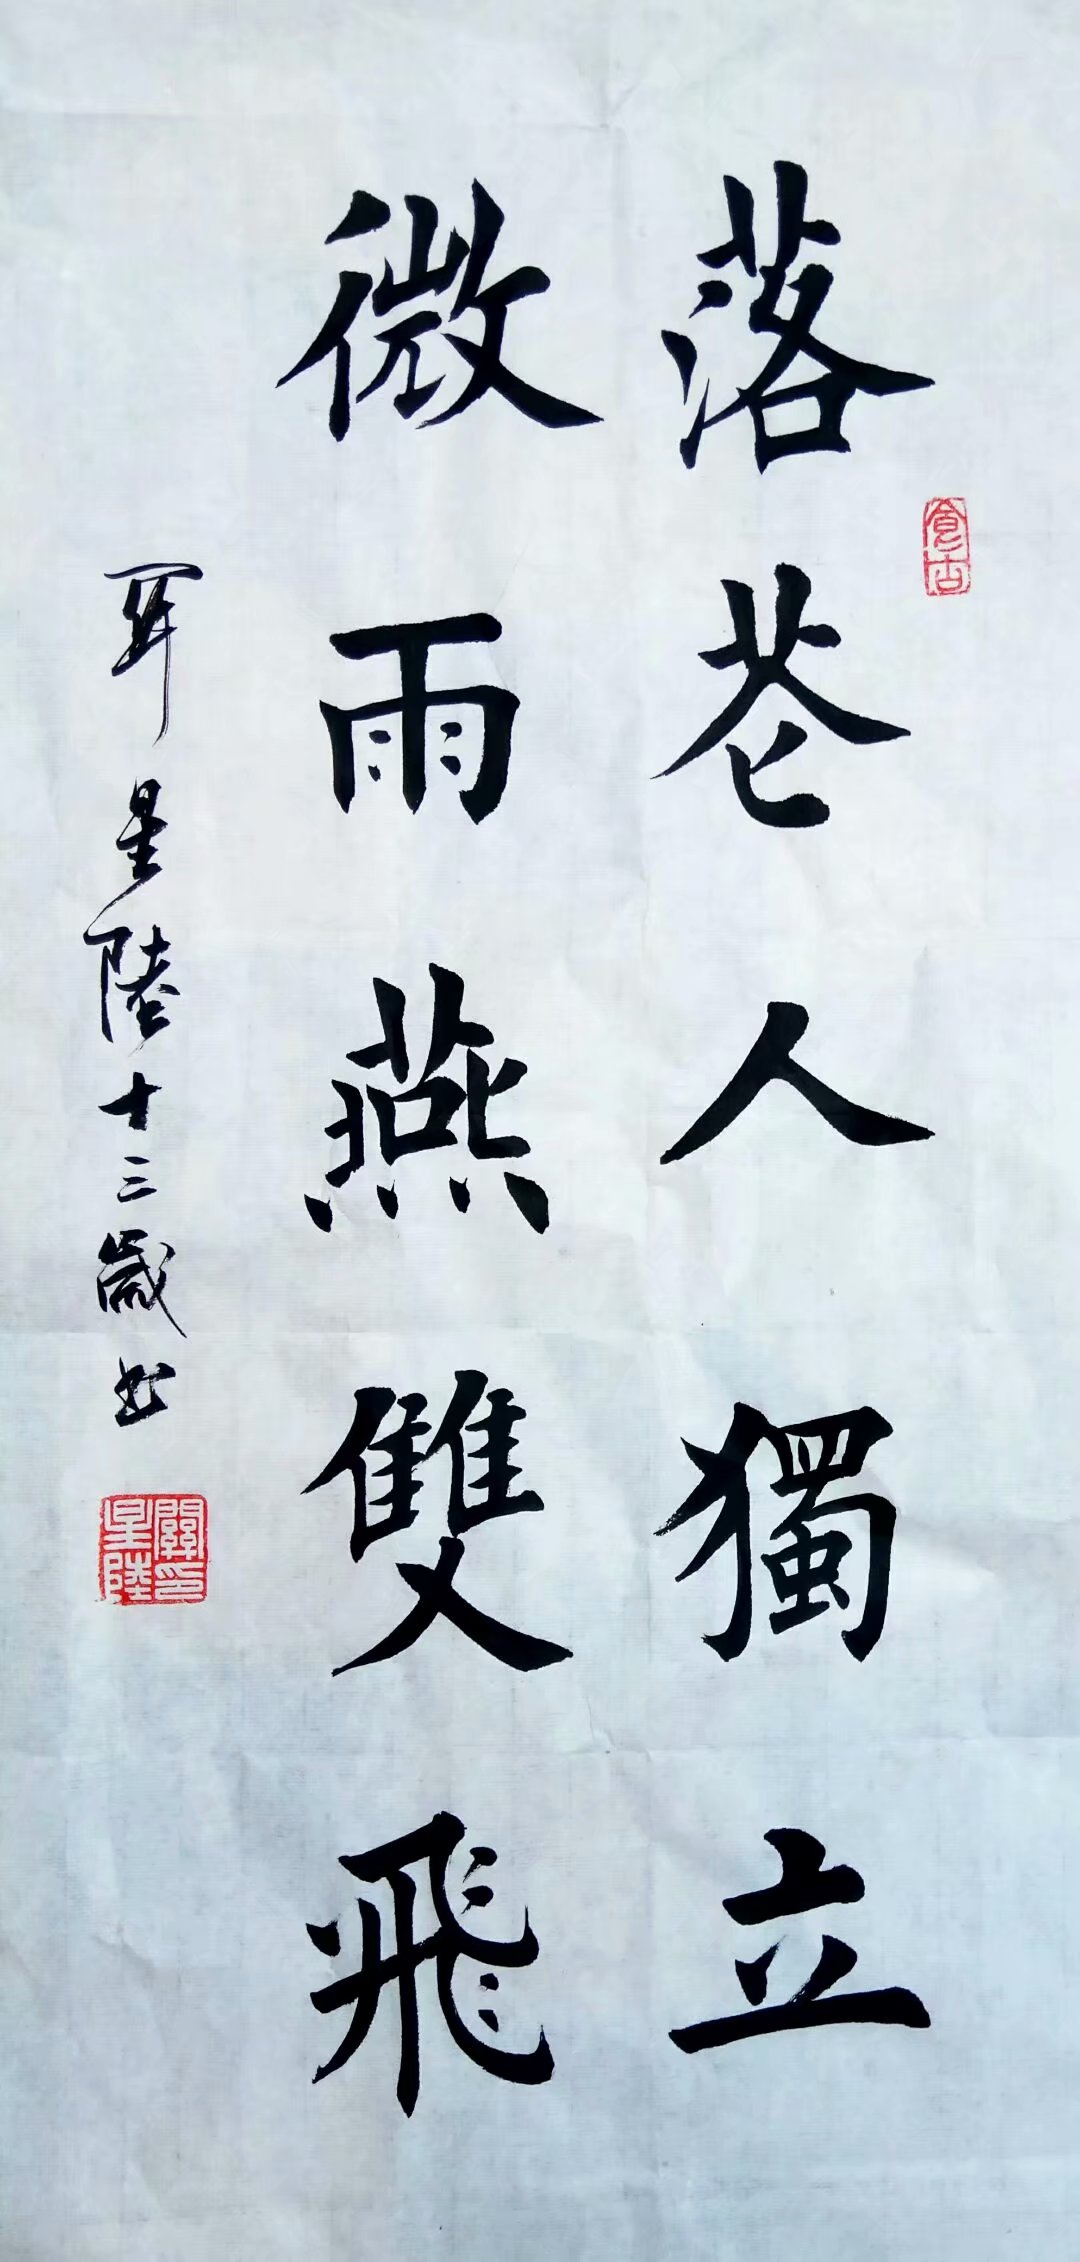 落花人獨立
微雨燕雙飛
關星陸十三歲書
關印
星陸